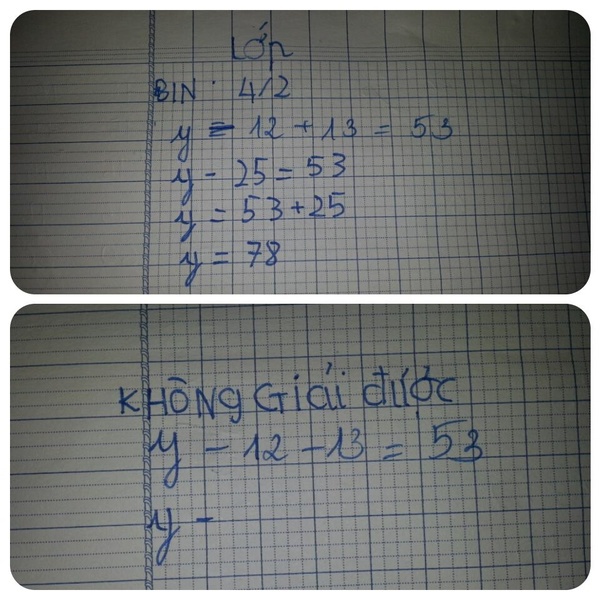 Lớp
BIN 4/2
y - 12 + 13 = 53
y - 25 = 53
y = 53 + 25
y = 78
KHÔNG Giải được
y - 12 - 13 = 53
y -